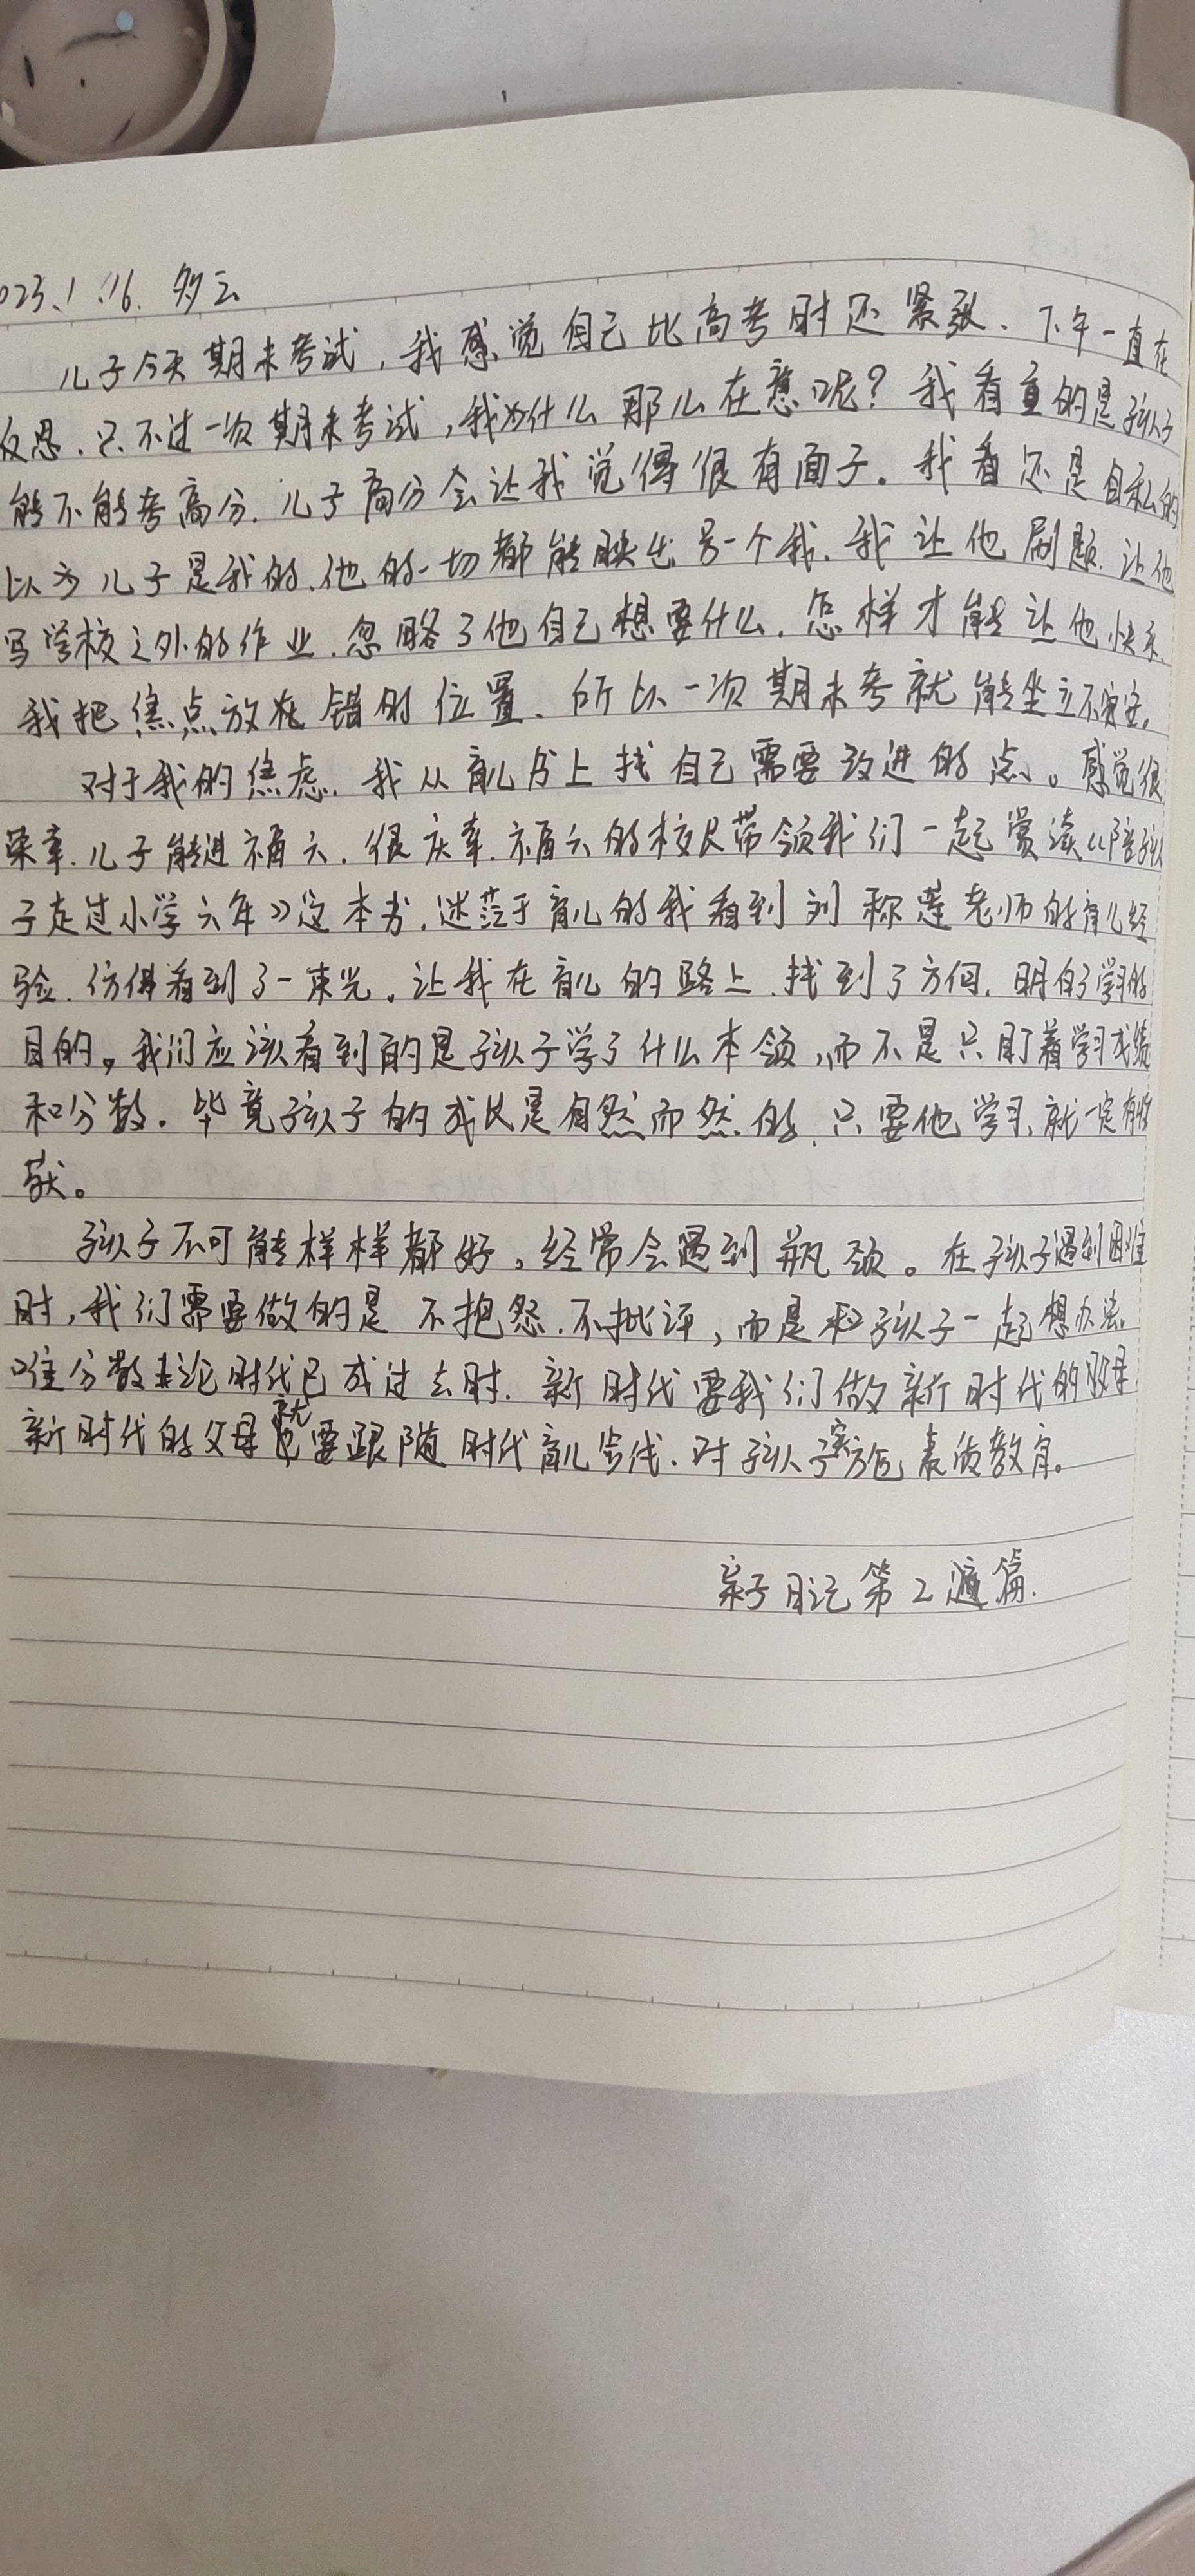 023.1.16. 多云
儿子今天期末考试,我感觉自己比高考时还紧张、下午一直在
反思.只不过一次期末考试,我为什么那么在意呢?我看重的是孩子
能不能考高分.儿子高分会让我觉得很有面子。我看还是自私的
以为儿子是我的.他的一切都能映出另一个我.我让他刷题.让他
写学校之外的作业.忽略了他自己想要什么.怎样才能让他快乐.
我把焦点放在错的位置.所以一次期末考就能坐立不安.
对于我的焦虑.我从育儿书上找自己需要改进的点。感觉很
荣幸.儿子能进福六.很庆幸.福六的校长带领我们一起赏读《陪孩
子走过小学六年》这本书.迷茫于育儿的我看到刘称莲老师的育儿经
验.仿佛看到了一束光。让我在育儿的路上.找到了方向.明白了学习的
目的。我们应该看到的是孩子学了什么本领,而不是只盯着学习成绩
和分数。毕竟孩子的成长是自然而然的.只要他学习.就一定有收
获。
孩子不可能样样都好。经常会遇到瓶颈。在孩子遇到困难
时,我们需要做的是不抱怨.不批评,而是和孩子一起想办法.
唯分数论时代已成过去时.新时代要我们做新时代的父母.
新时代的父母就要跟随时代育儿步伐.对孩子实施素质教育。
亲子日记第2篇.